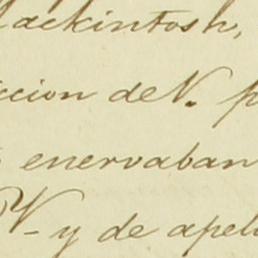 Mackintosh,
ccion de V. p
enervaban
V- y de apel